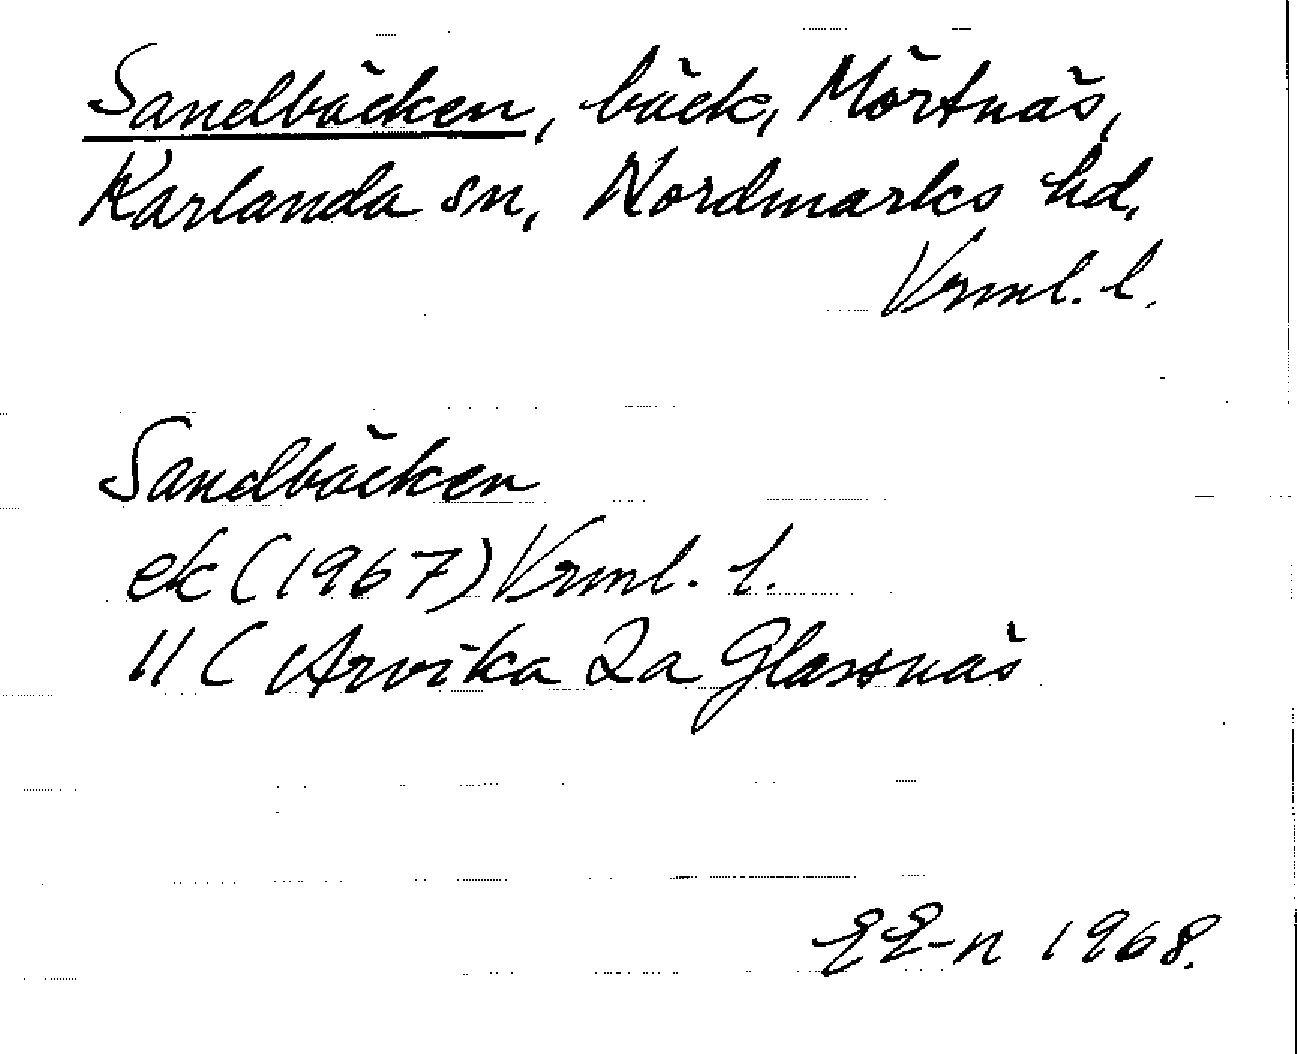 Sandbäcken, bäck, Mörtnäs,
Karlanda sn, Nordmarks hd,
Vrml. l.
Sandbäcken
ek (1967) Vrml. l.
11 C Arvika 2a Glassnäs
EE-n 1968.